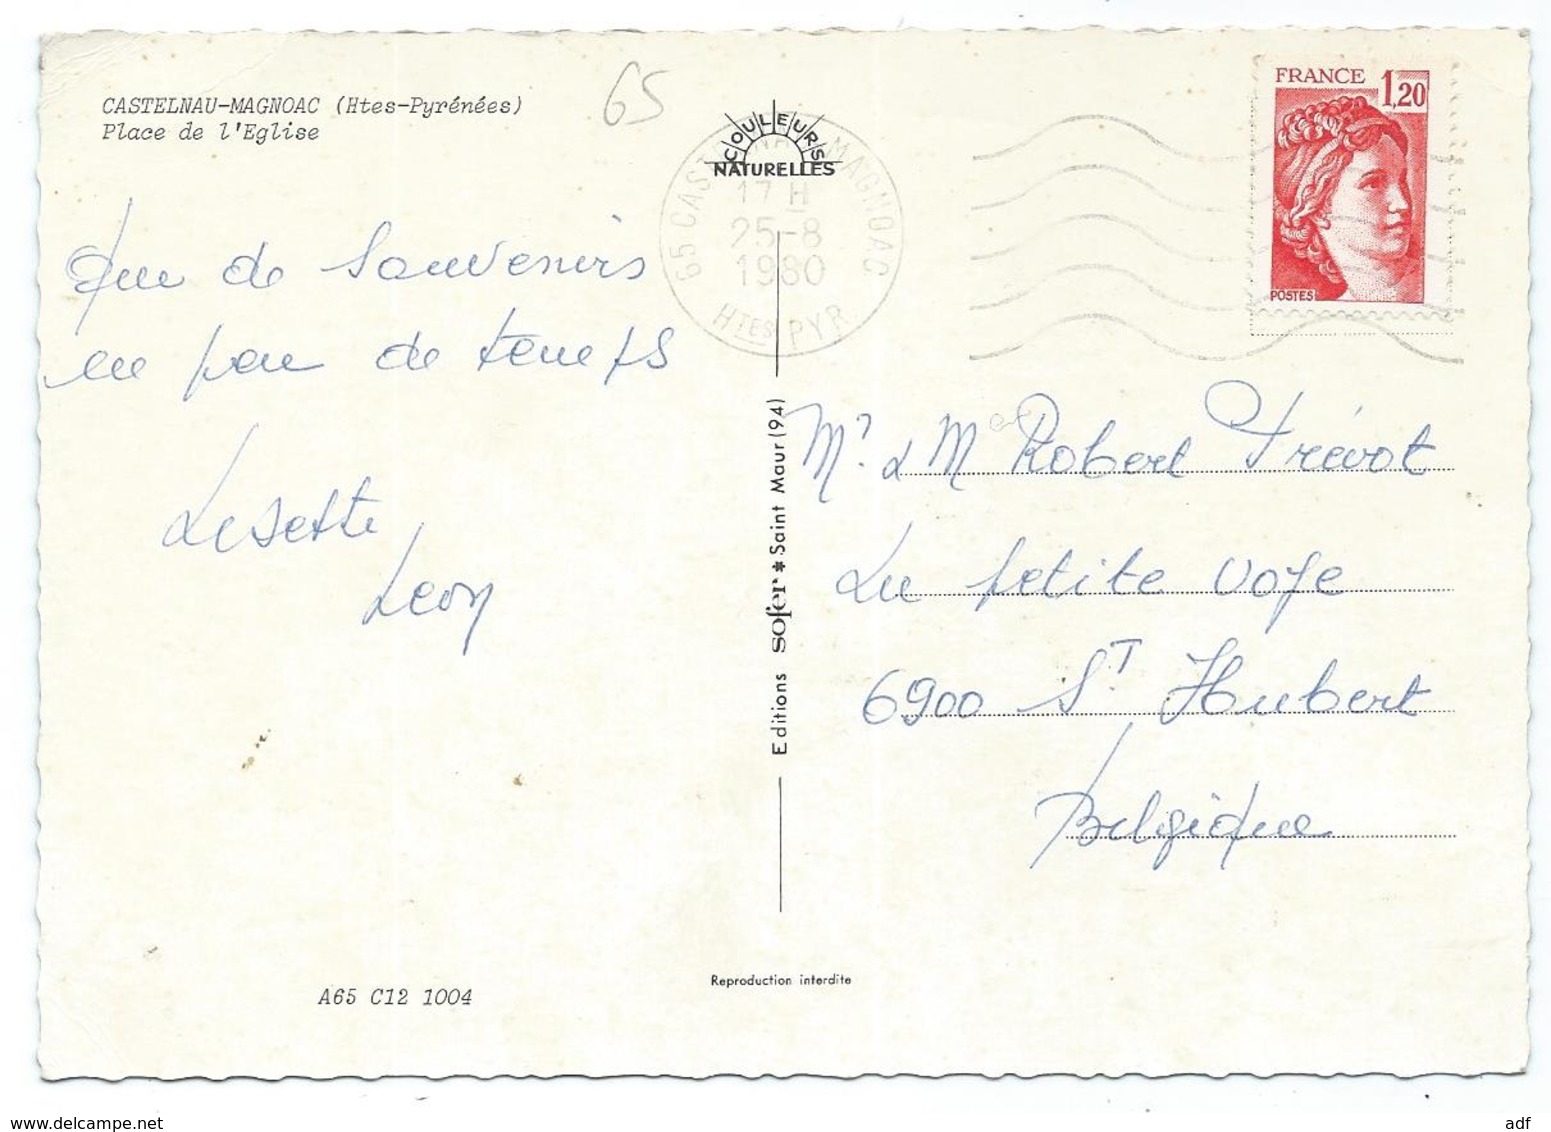 CASTELNAU-MAGNOAC (Htes-Pyrénées)
Place de l'Eglise
65
COULEURS
NATURELLES
65 CASTELNAU MAGNOAC
17 H
25-8
1980
HTES PYR.
FRANCE 1,20
POSTES
Que de souvenirs
en peu de temps
Lesette
Leon
Mr & Me Robert Prévot
La petite Voye
6900 St Hubert
Belgique
Editions sofer * Saint Maur (94)
Reproduction interdite
A65 C12 1004
www.delcampe.net
adf